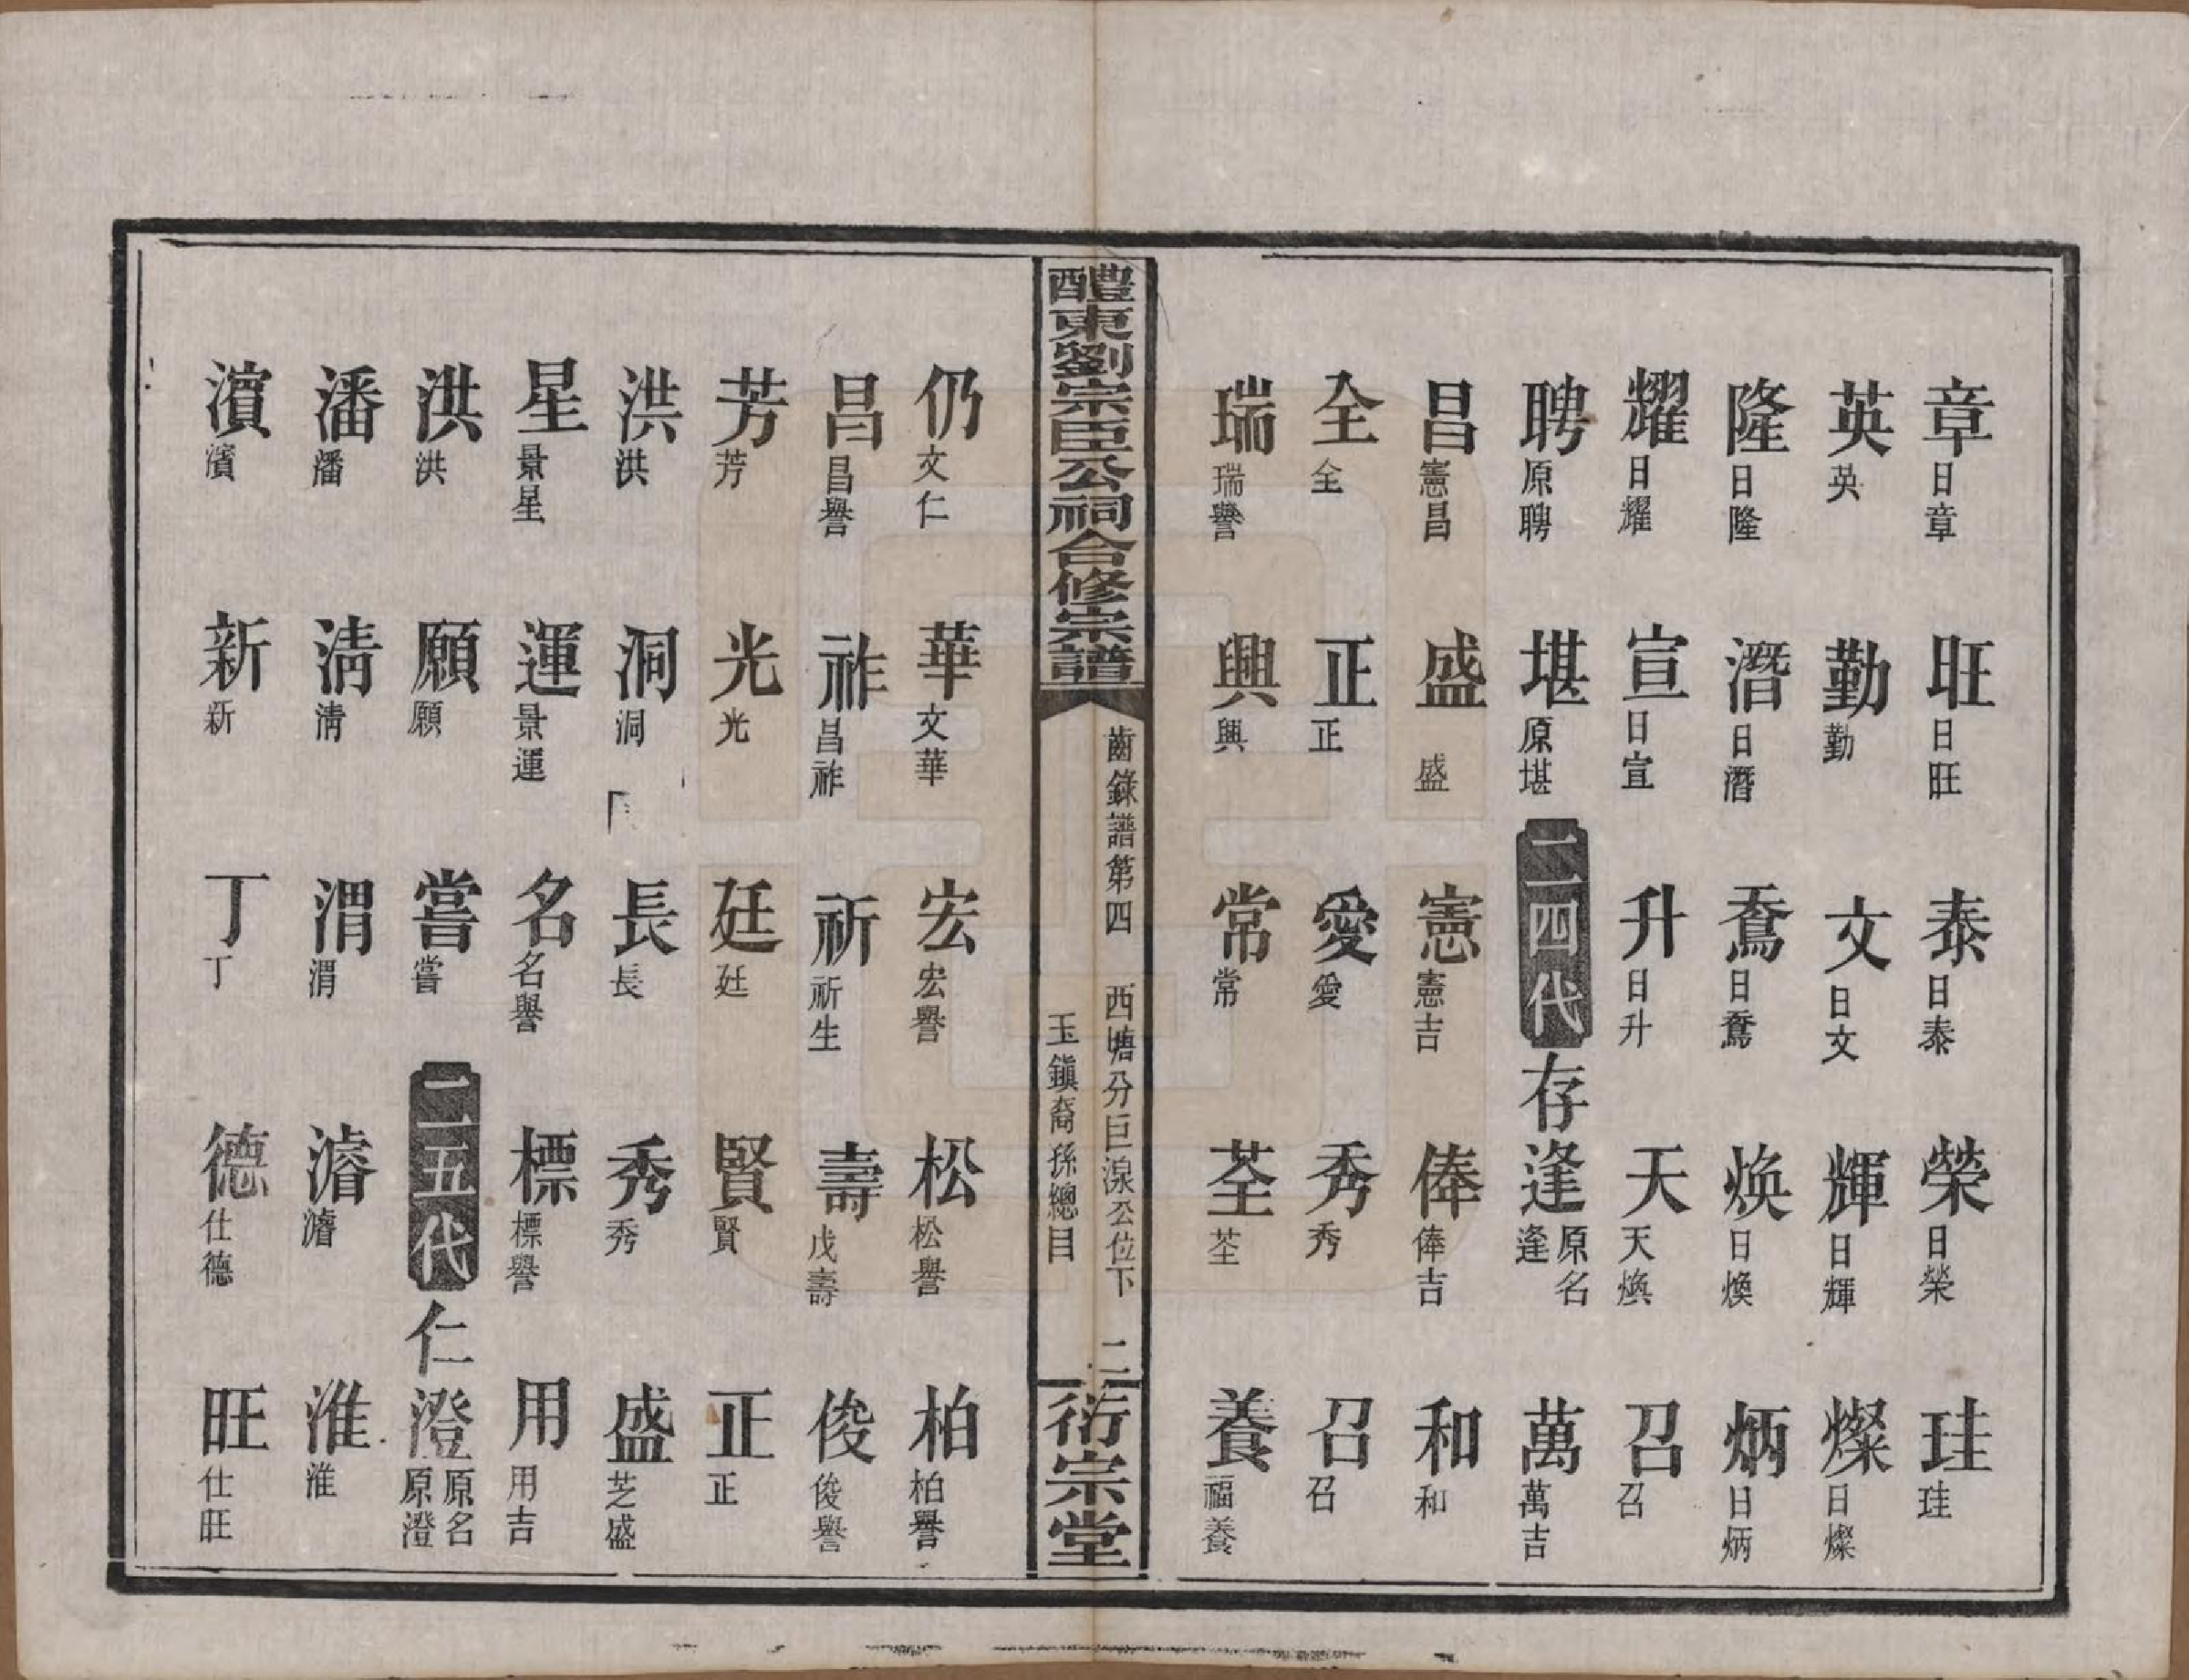 章日章　旺日旺　泰日泰　榮日榮　珪珪
英英　勤勤　文日文　輝日輝　燦日燦
隆日隆　潛日潛　鴌日鴌　煥日煥　炳日炳
耀日耀　宣日宣　升日升　天天煥　召召
聘原聘　堪原堪　二四代　存　逢原名逢　萬萬吉
昌憲昌　盛盛　憲憲吉　俸俸吉　和和
全全　正正　愛愛　秀秀　召召
瑞瑞譽　興興　常常　荃荃　養福養
醴東劉宗臣公祠合修宗譜　齒錄譜第四　西塘分巨湶公位下　玉鎭裔孫總目　二　衍宗堂
仍文仁　華文華　宏宏譽　松松譽　柏柏譽
昌昌譽　祚昌祚　祈祈生　壽戊壽　俊俊譽
芳芳　光光　廷廷　賢賢　正正
洪洪　洞洞　長長　秀秀　盛芝盛
星景星　運景運　名名譽　標標譽　用用吉
洪洪　願願　嘗嘗　二五代　仁　澄原名原澄
潘潘　淸淸　渭渭　濬濬　淮淮
濱濱　新新　丁丁　德仕德　旺仕旺